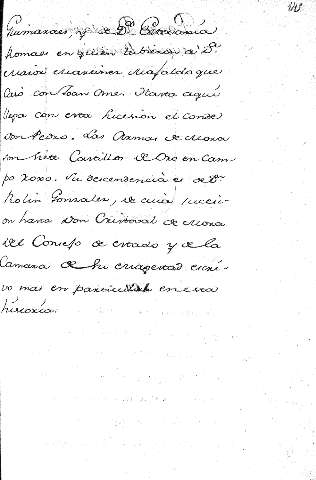 Guimaraes, y de Dª Estevania
Romaes en quien tubieron a Dª
Maior Martinez Mafalda que
casó con Joan Ome. Hasta aquí
llega con esta sucesion el conde
Don Pedro. Las Armas de Mora
son siete Castillos de Oro en cam-
po roxo. Su descendencia es de Dⁿ
Rolin Gonzales, de cuia sucesi-
on hasta Don Cristoval de Mora
del Consejo de estado y de la
Camara de su magestad escri-
vo mas en particular en esta
historia.